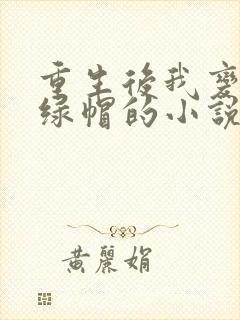 重生後我變
绿帽的小說
黃麗娟